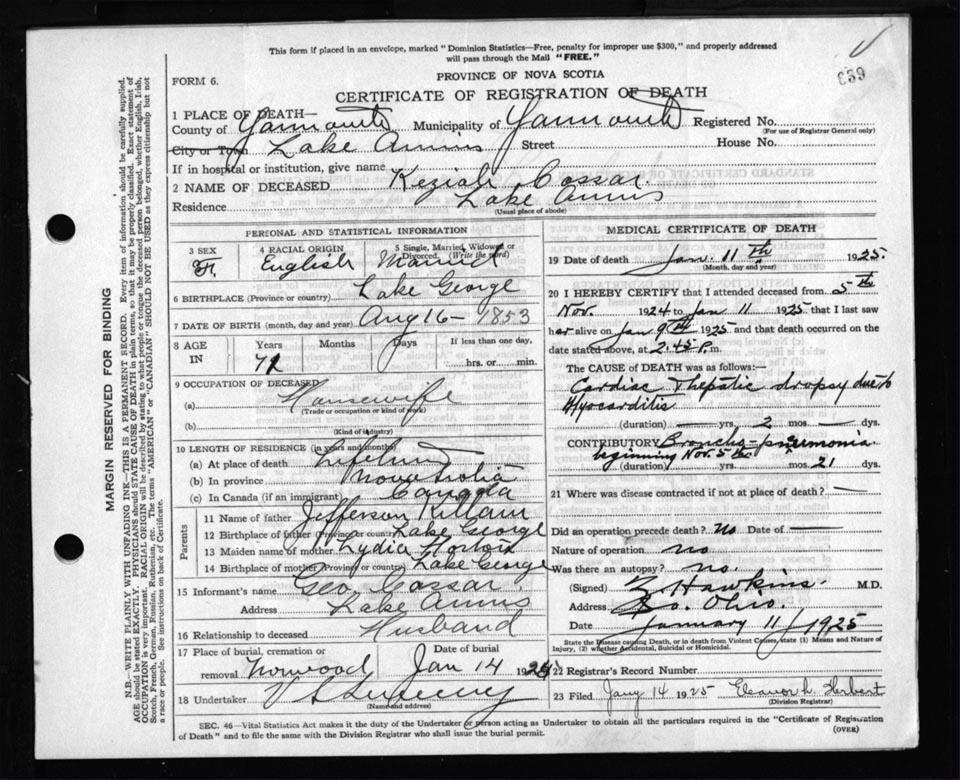 This form if placed in an envelope, marked "Dominion Statistics—Free, penalty for improper use $300," and properly addressed
will pass through the Mail "FREE."
FORM 6.
PROVINCE OF NOVA SCOTIA
CERTIFICATE OF REGISTRATION OF DEATH
MARGIN RESERVED FOR BINDING
N.B.—WRITE PLAINLY WITH UNFADING INK—THIS IS A PERMANENT RECORD. Every item of information should be carefully supplied.
AGE should be stated EXACTLY. PHYSICIANS should STATE CAUSE OF DEATH in plain terms, so that it may be properly classified. Exact statement of
OCCUPATION is very important. RACIAL ORIGIN will be described by stating to what people or tongue the deceased person belonged, whether English, Irish,
Scotch, French, German, Russian, Ruthenian, etc. The terms "AMERICAN" or "CANADIAN" SHOULD NOT BE USED as they express citizenship but not
a race or people. See instructions on back of Certificate.
1 PLACE OF DEATH—
County of Yarmouth Municipality of Yarmouth Registered No.
(For use of Registrar General only)
City or Town Lake Annis Street House No.
If in hospital or institution, give name
2 NAME OF DECEASED Keziah Cossar
Residence Lake Annis
(Usual place of abode)
PERSONAL AND STATISTICAL INFORMATION
3 SEX F. 4 RACIAL ORIGIN English 5 Single, Married, Widowed or Divorced (Write the word) Married
6 BIRTHPLACE (Province or country) Lake George
7 DATE OF BIRTH (month, day and year) Aug 16 - 1853
8 AGE IN Years Months Days If less than one day, hrs. or min.
9 OCCUPATION OF DECEASED
(a) Housewife
(Trade or occupation or kind of work)
(b)
(Kind of industry)
10 LENGTH OF RESIDENCE (in years and months)
(a) At place of death
(b) In province Nova Scotia
(c) In Canada (if an immigrant) Canada
Parents
11 Name of father Jefferson Killam
12 Birthplace of father (Province or country) Lake George
13 Maiden name of mother Lydia
14 Birthplace of mother (Province or country) Lake George
15 Informant's name Geo. Cossar
Address Lake Annis
16 Relationship to deceased Husband
17 Place of burial, cremation or removal Norwood Date of burial Jan 14 192
18 Undertaker V S Sweeney
(Name and address)
MEDICAL CERTIFICATE OF DEATH
19 Date of death Jan. 11th 1925.
(Month, day and year)
20 I HEREBY CERTIFY that I attended deceased from 5th
Nov. 1924 to Jan 11 1925 that I last saw
her alive on Jan 9th 1925 and that death occurred on
date stated above, at 2.45 P. m.
The CAUSE of DEATH was as follows:—
Cardiac & hepatic dropsy due to
Myocarditis
(duration) — yrs. 2 mos. — dys.
CONTRIBUTORY Broncho-pneumonia.
beginning Nov. 5th.
(duration) yrs. mos. 21 dys.
21 Where was disease contracted if not at place of death? —
Did an operation precede death? no Date of —
Nature of operation no
Was there an autopsy? no.
(Signed) Z Hawkins. M.D.
Address, So. Ohio.
Date January 11/1925
State the Disease causing Death, or in death from Violent Causes, state (1) Means and Nature of
Injury, (2) whether Accidental, Suicidal or Homicidal.
22 Registrar's Record Number
23 Filed Jany 14 1925 Eleanor L. Herbert
(Division Registrar)
SEC. 46—Vital Statistics Act makes it the duty of the Undertaker or person acting as Undertaker to obtain all the particulars required in the "Certificate of Registration
of Death" and to file the same with the Division Registrar who shall issue the burial permit.
(OVER)